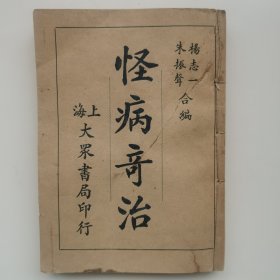 楊志一
朱振聲
合編
怪病奇治
上海
大眾書局印行